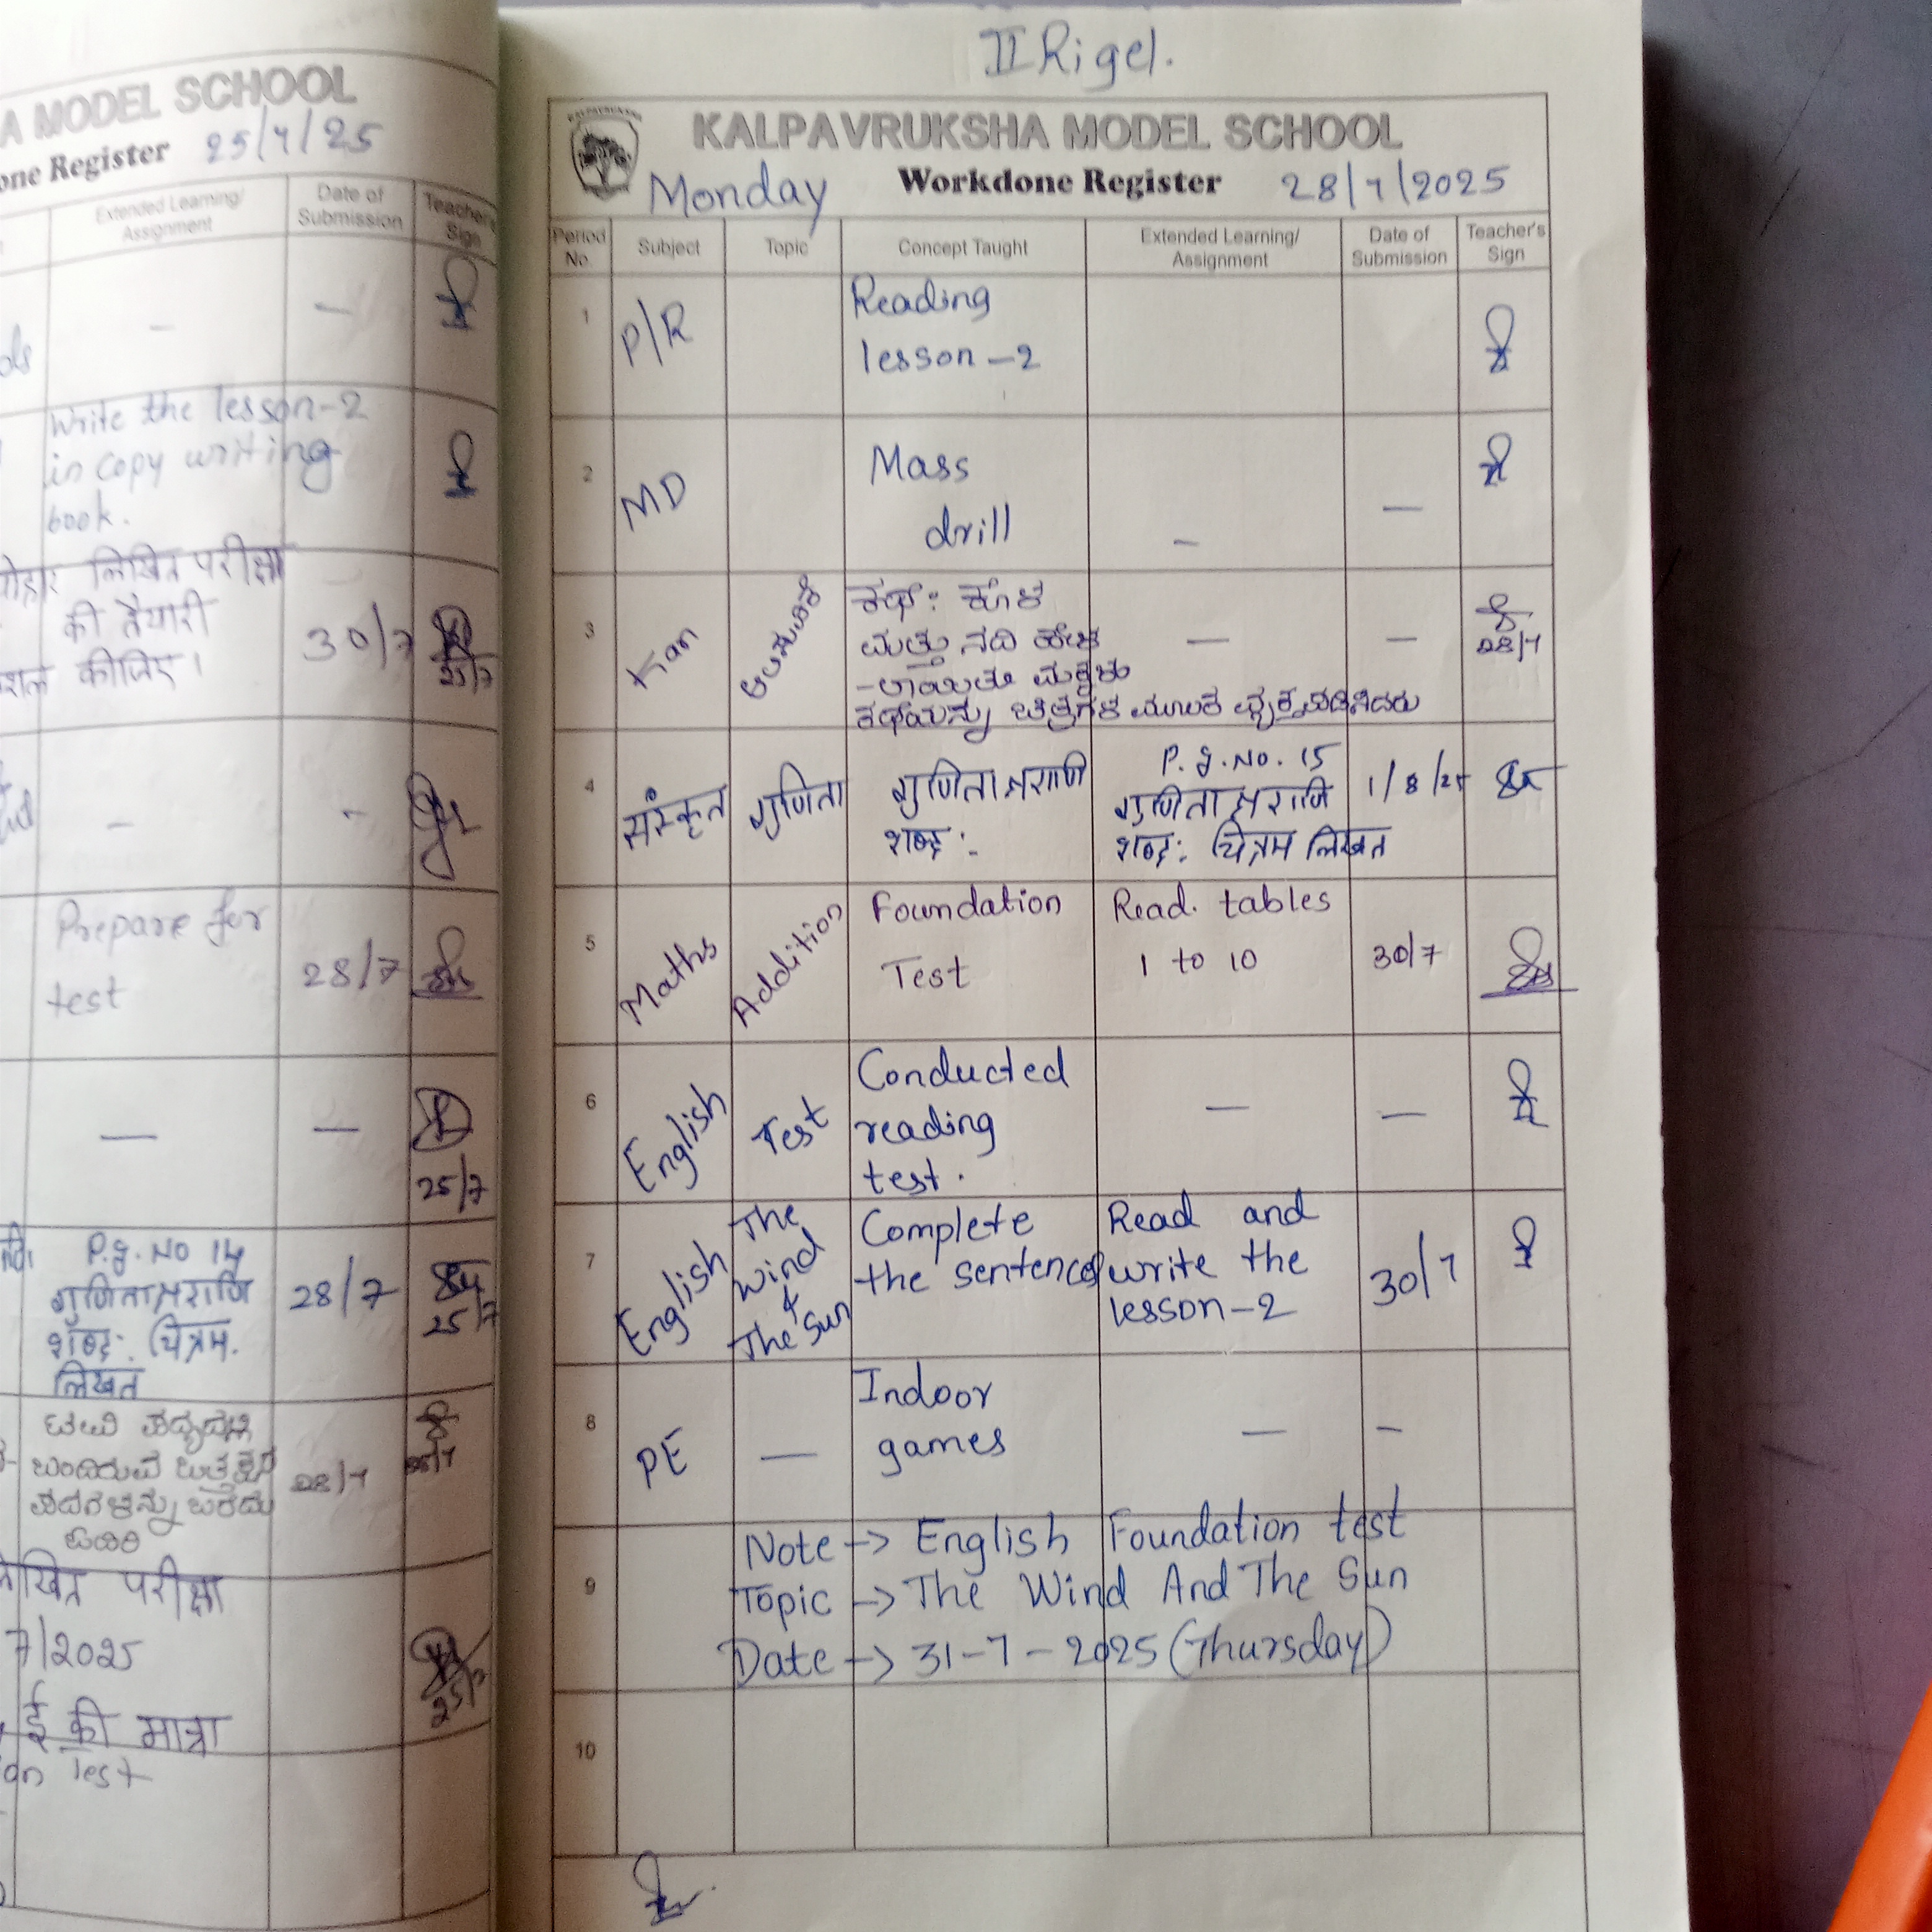 A MODEL SCHOOL
one Register 25/7/25
Extended Learning/
Assignment
Date of
Submission
Teacher's
Sign
—
—
Write the lesson-2
in copy writing
book.
लिखित परीक्षा
की तैयारी
कीजिए।
30/7
25/7
–
-
Prepare for
test
28/7
—
—
25/7
P.g. No 14
गुणिताक्षराणि
शब्द: चित्रम
लिखत
28/7
25/7
28/7
परीक्षा
7/2025
25/7
ई की मात्रा
Test
II Rigel.
KALPAVRUKSHA MODEL SCHOOL
Monday Workdone Register 28/7/2025
Period
No.
Subject
Topic
Concept Taught
Extended Learning/
Assignment
Date of
Submission
Teacher's
Sign
1
P/R
Reading
lesson-2
2
MD
Mass
drill
–
—
3
Kan
ಕಥೆ:
ಮತ್ತು ನದಿ
ಕಥೆಯನ್ನು ಚಿತ್ರಗಳ ಮೂಲಕ
—
—
28/7
4
संस्कृत
गुणिता
गुणिताक्षराणि
शब्द:
P.g. No. 15
गुणिताक्षराणि
शब्द: चित्रम लिखत
1/8/25
5
Maths
Addition
Foundation
Test
Read. tables
1 to 10
30/7
6
English
Test
Conducted
reading
test.
—
—
7
English
The
Wind
+
The Sun
Complete
the sentences
Read and
write the
lesson-2
30/7
8
PE
—
Indoor
games
—
–
9
Note -> English Foundation test
Topic -> The Wind And The Sun
Date -> 31-7-2025 (Thursday)
10